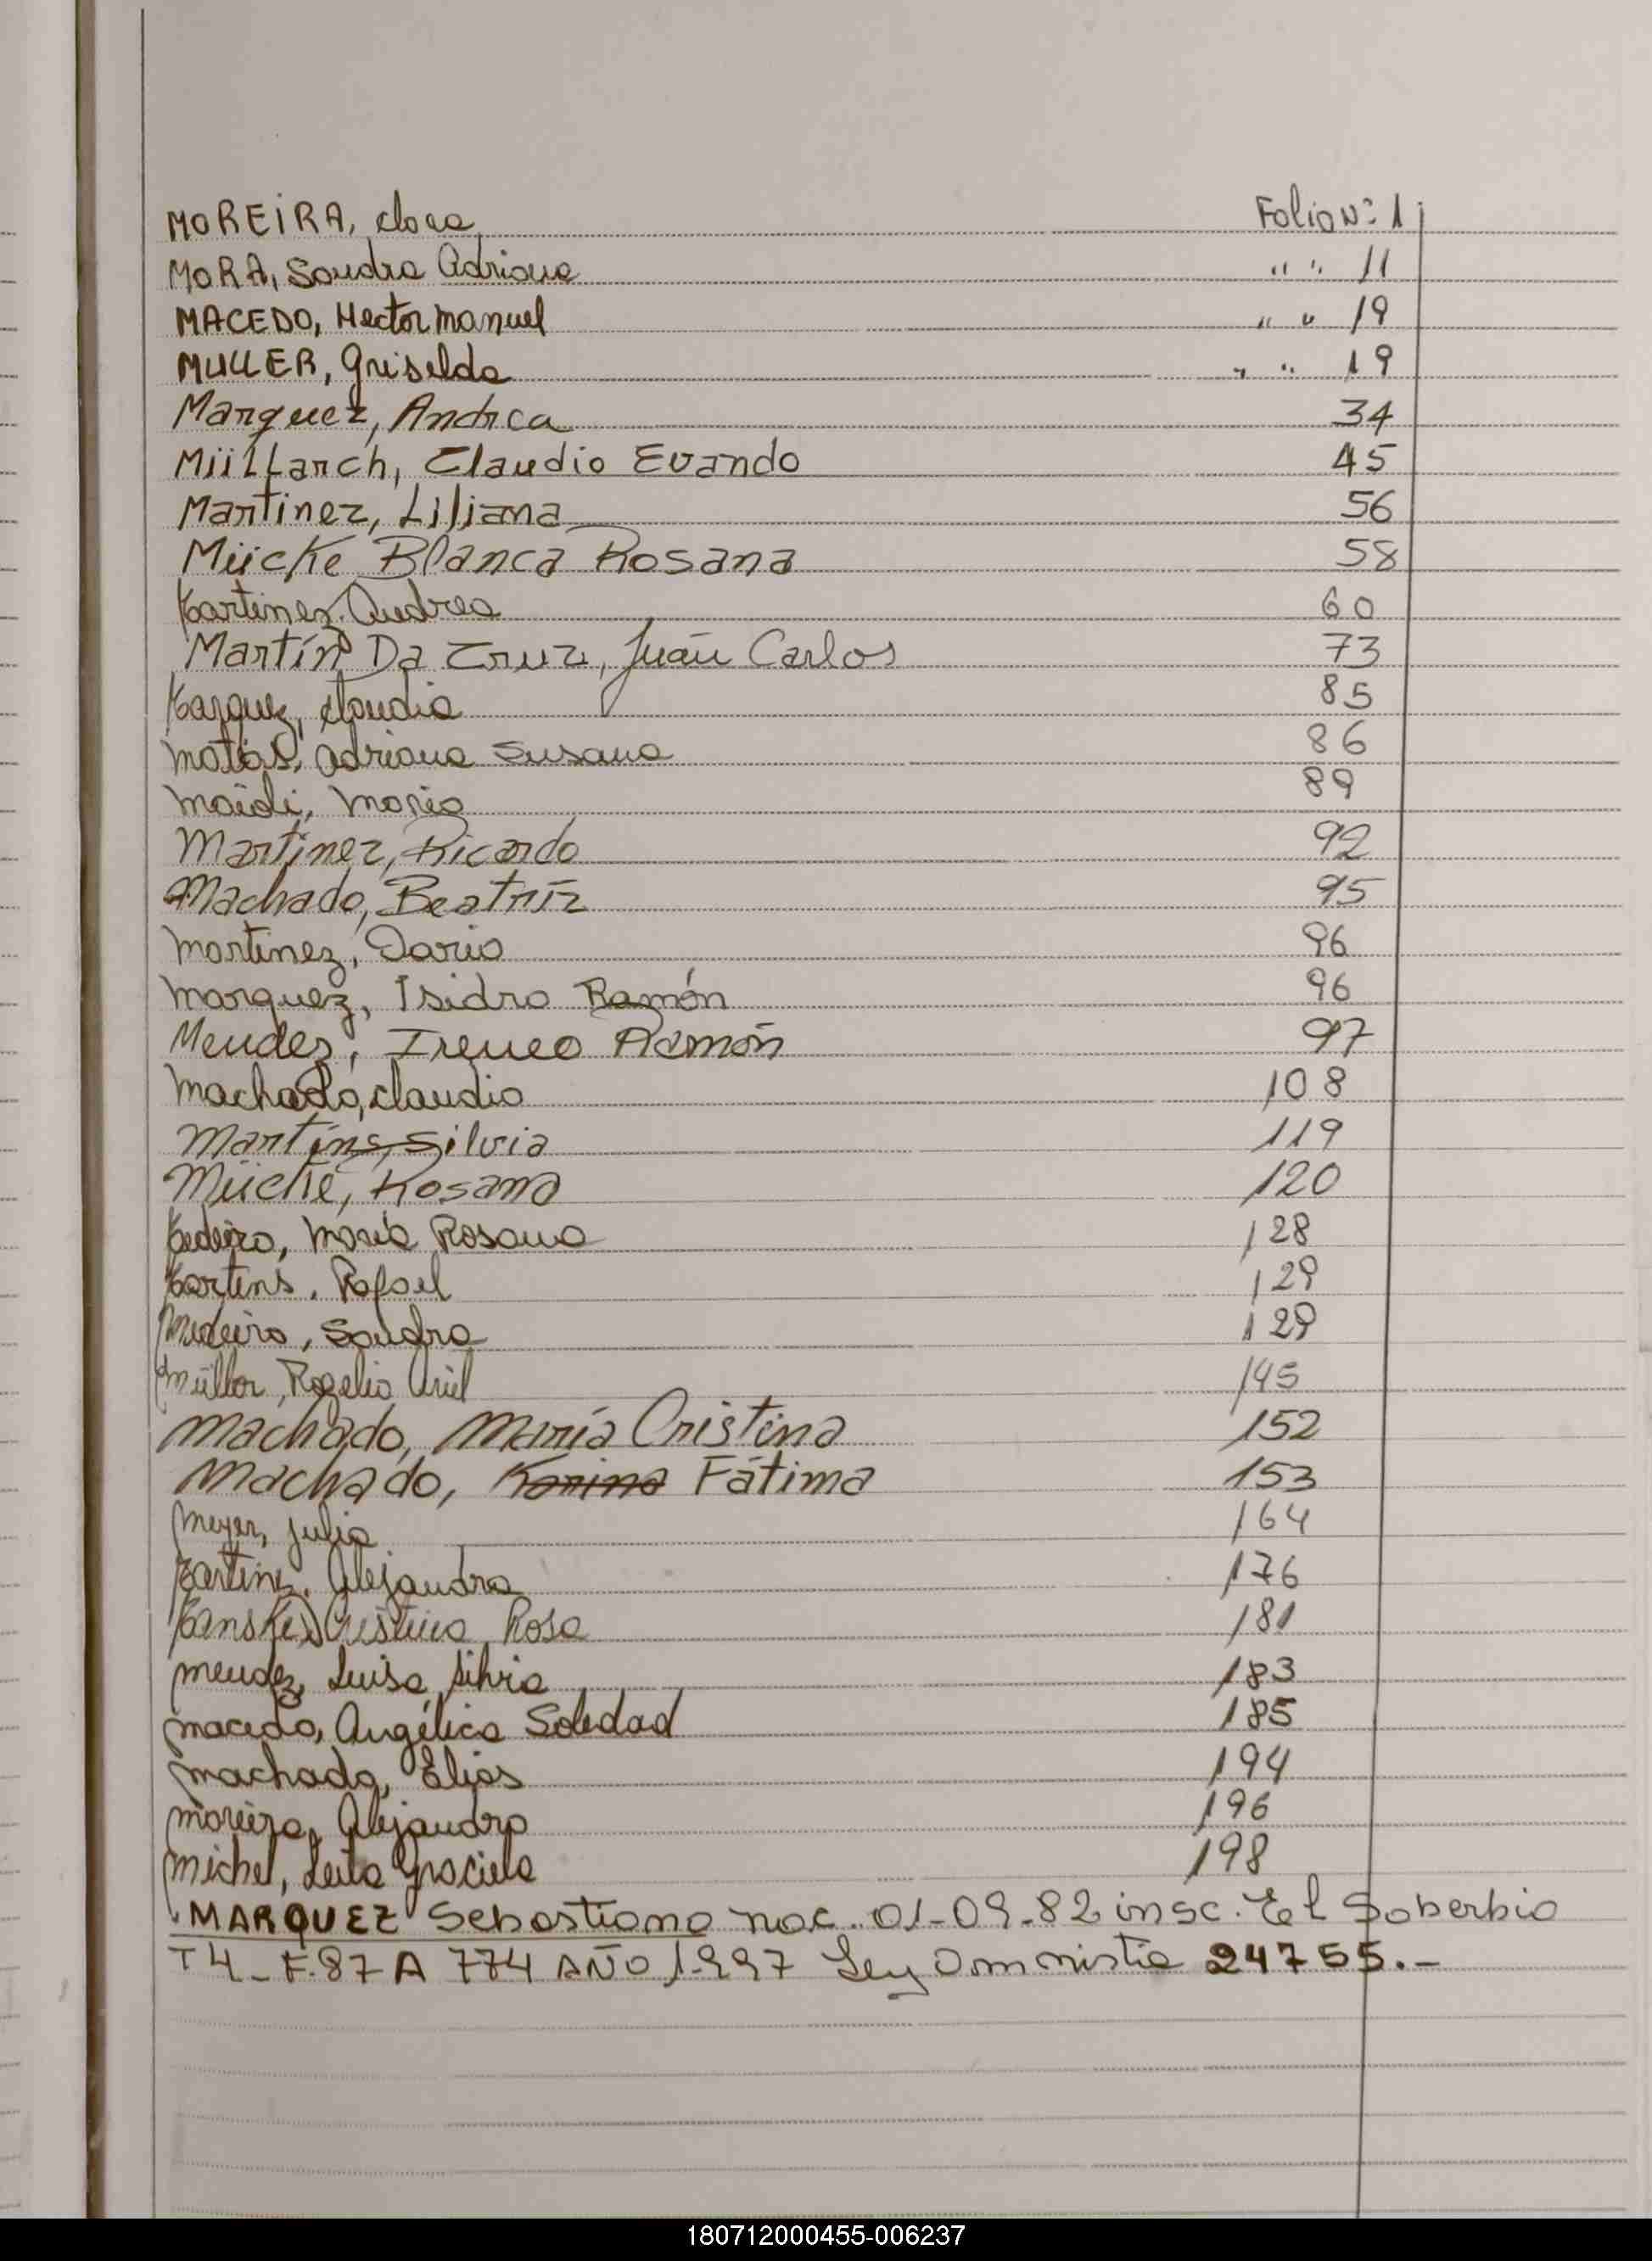 MOREIRA, Clara Folio Nº 1
MORA, Sandra Adriana " " 11
MACEDO, Hector Manuel " " 19
MULLER, Griselda " " 19
Marquez, Andrea 34
Müllarch, Claudio Evando 45
Martinez, Liliana 56
Mücke Blanca Rosana 58
Martinez. Andrea 60
Martín Da Cruz, Juan Carlos 73
Marquez, Claudia 85
Matos, Adriana Susana 86
Maidi, Mario 89
Martinez, Ricardo 92
Machado, Beatríz 95
Martinez, Dario 96
Marquez, Isidro Ramón 96
Mendez, Ireneo Ramón 97
Machado, Claudio 108
Martins, Silvia 119
Mücke, Rosana 120
Medeiro, Maria Rosana 128
Martins. Rafael 129
Medeiro, Sandra 129
Müller, Rogelio Uriel 145
Machado, María Cristina 152
Machado, Karina Fátima 153
Meyer, Julio 164
Martinz. Alejandra 176
Manske, Cristina Rosa 181
Mendez, Luisa Silvia 183
Macedo, Angélica Soledad 185
Machado, Elias 194
Moreira, Alejandro 196
Michel, Leila Graciela 198
MARQUEZ Sebastiana nac. 01-09-82 insc. El Soberbio
T4_ F.87 A 774 AÑO 1.997 Ley Omnistia 24755.-
180712000455-006237